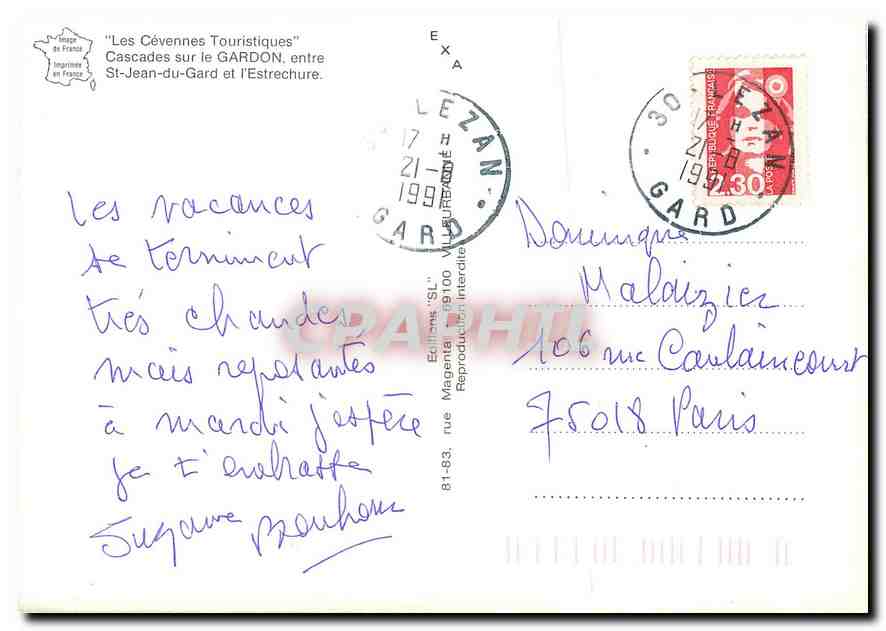 Image
de France
Imprimée
en France
"Les Cévennes Touristiques"
Cascades sur le GARDON, entre
St-Jean-du-Gard et l'Estrechure.
EXA
LEZAN
17 H
21-8
1991
GARD
30 LEZAN
17 H
21-8
1991
GARD
RÉPUBLIQUE FRANÇAISE
2.30
LA POSTE
Les vacances
se terminent
très chaudes,
mais reposantes
à mardi j'espère
je t'embrasse
Suzanne
Editions "SL"
81-83, rue Magenta - 69100 VILLEURBANNE
Reproduction interdite
CPAPHIL
Dominique
Malaizier
106 rue Caulaincourt
75018 Paris